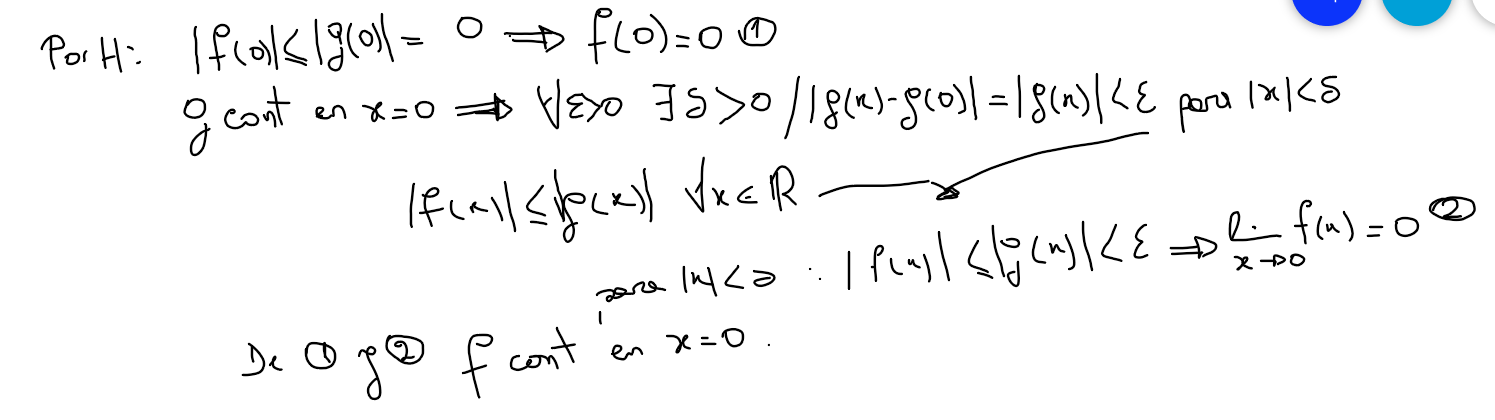 Por H: |f(0)| ≤ |g(0)| = 0 ⇒ f(0) = 0 ①
g cont en x=0 ⇒ ∀ε>0 ∃ δ>0 / |g(x)-g(0)| = |g(x)| < ε para |x|<δ
|f(x)| ≤ |g(x)| ∀x∈ℝ
para |x|<δ ∴ |f(x)| ≤ |g(x)| < ε ⇒ l. f(x) = 0 ②
x→0
De ① y ② f cont en x=0.